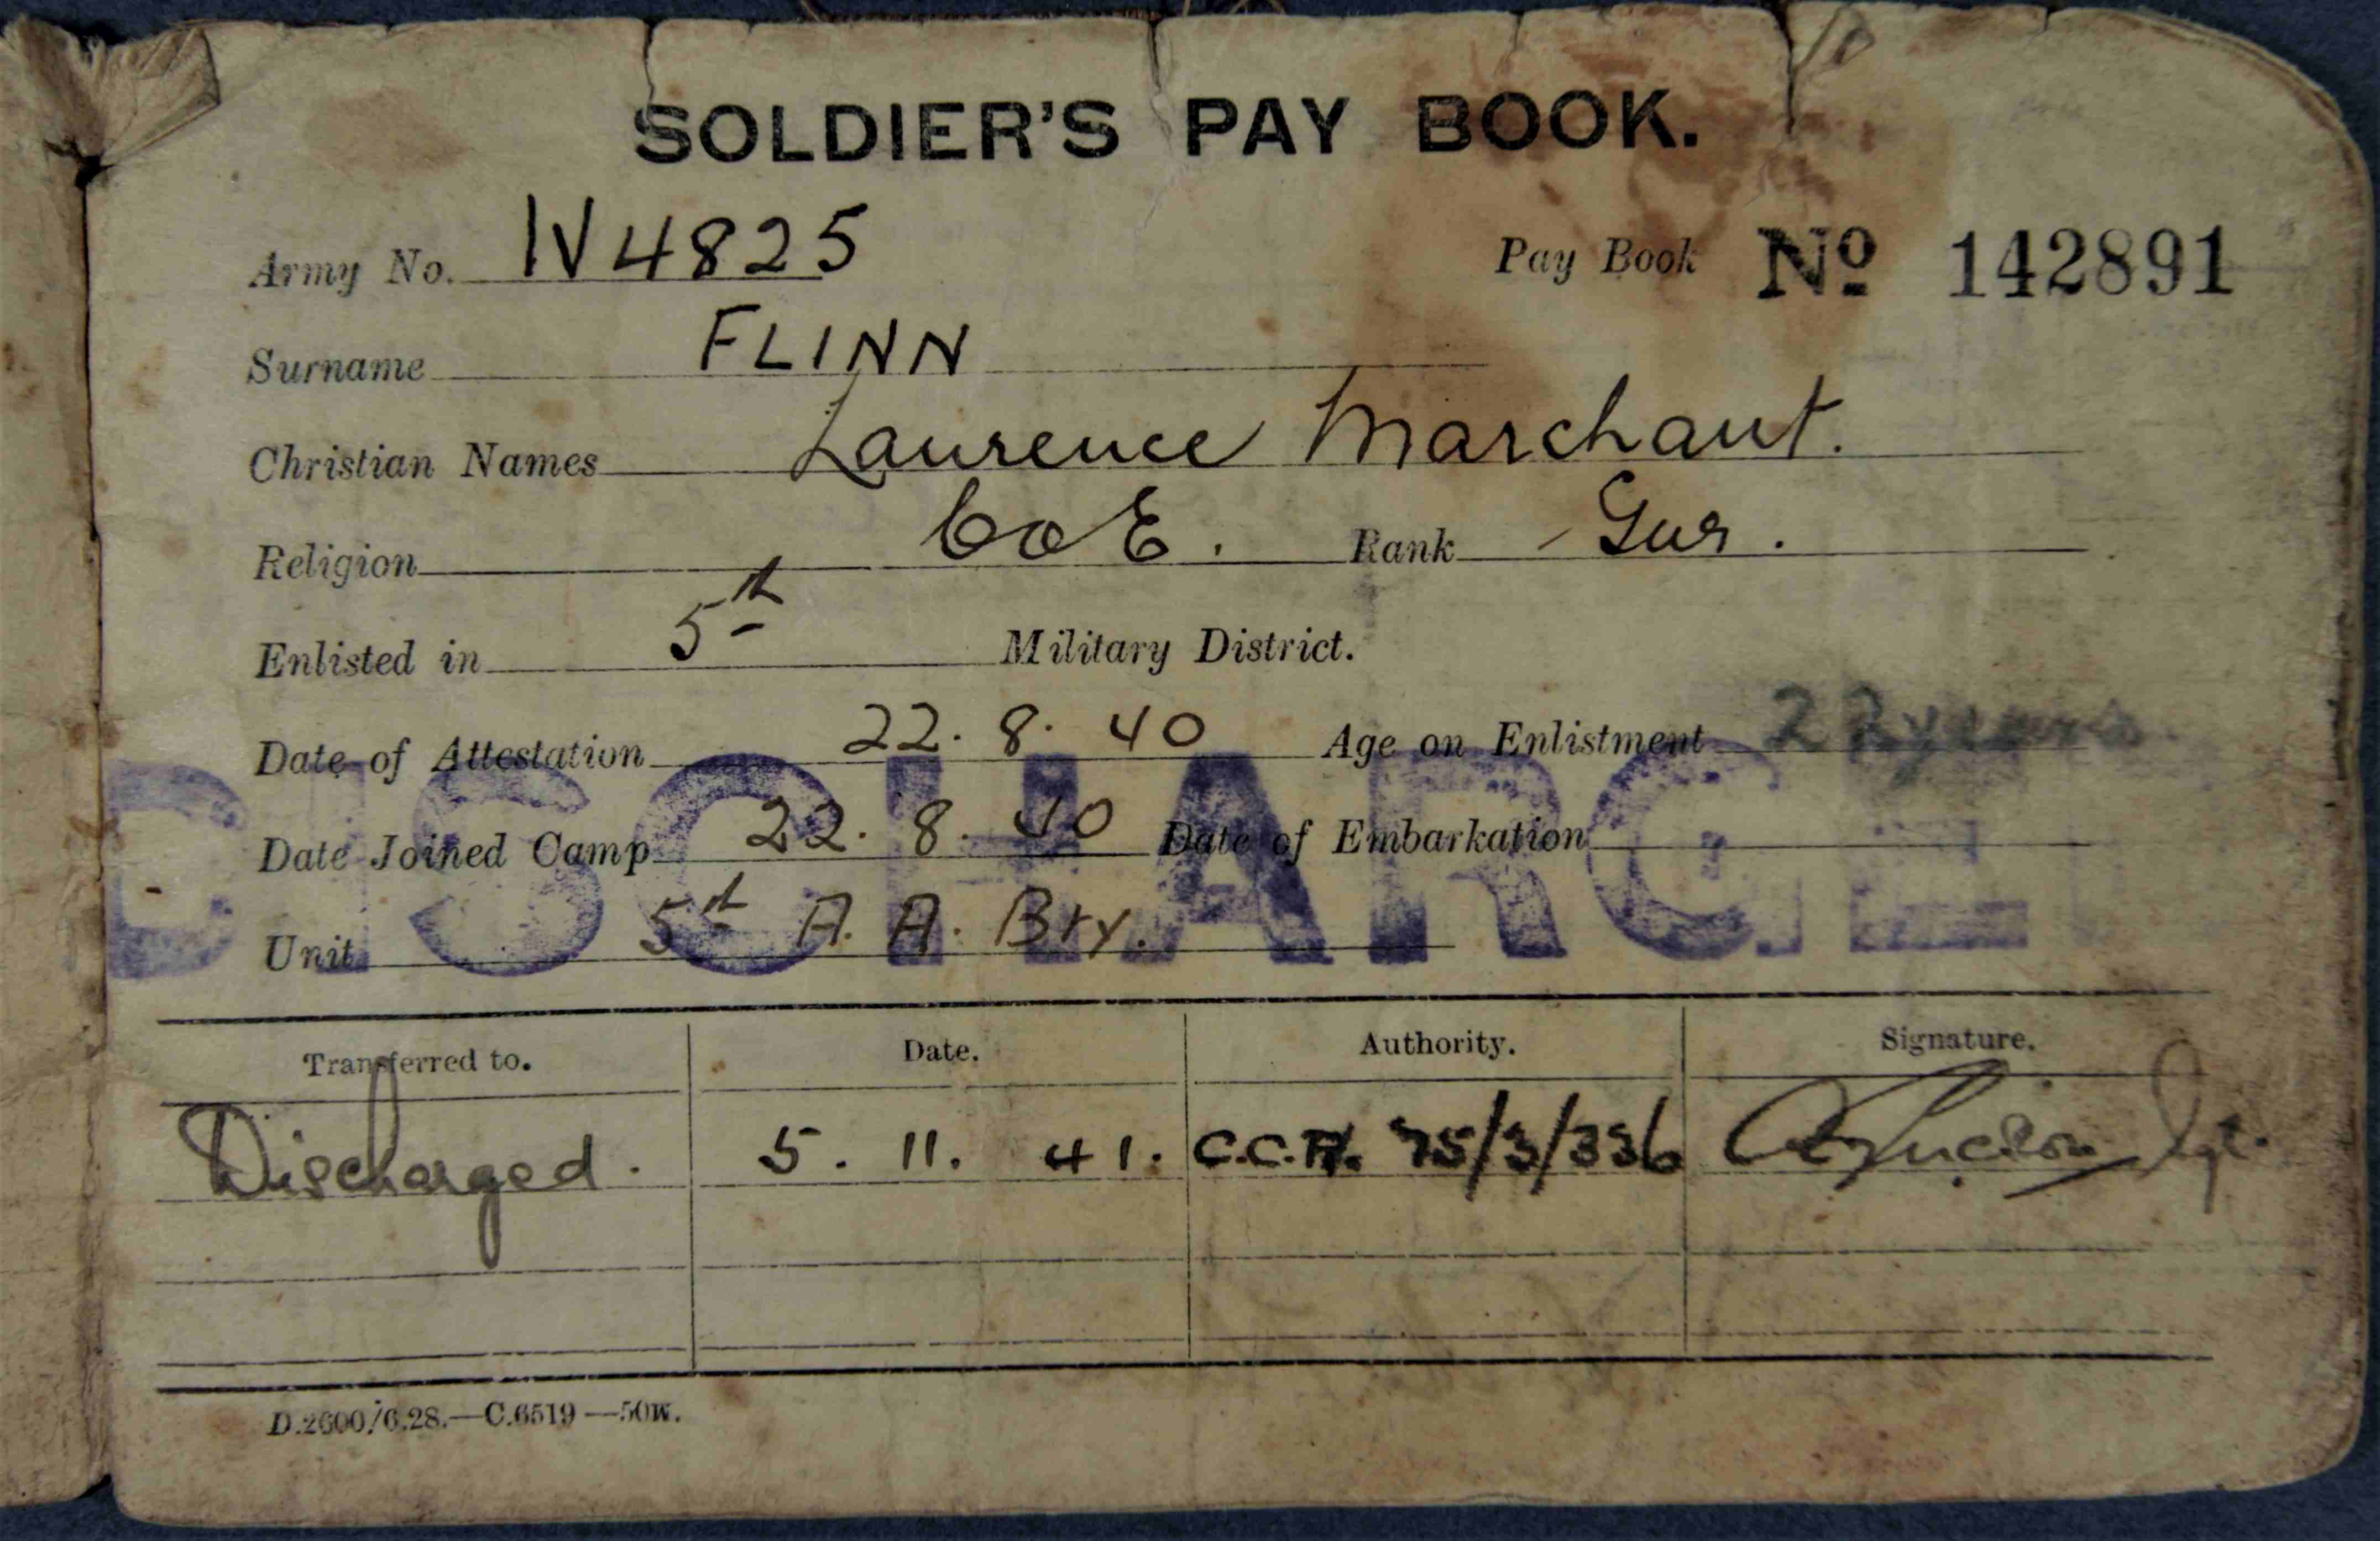 SOLDIER'S PAY BOOK.
Army No. W4825 Pay Book No 142891
Surname FLINN
Christian Names Laurence Marchant.
Religion C of E. Rank Gnr.
Enlisted in 5th Military District.
Date of Attestation 22. 8. 40 Age on Enlistment 22 years
Date Joined Camp 22. 8. 40 Date of Embarkation
Unit 5th A. A. Bty.
DISCHARGE
Transferred to. Date. Authority. Signature.
Discharged. 5. 11. 41. C.C.R. 75/3/336 Sgt.
D.2600/6.28.—C.6519—50W.